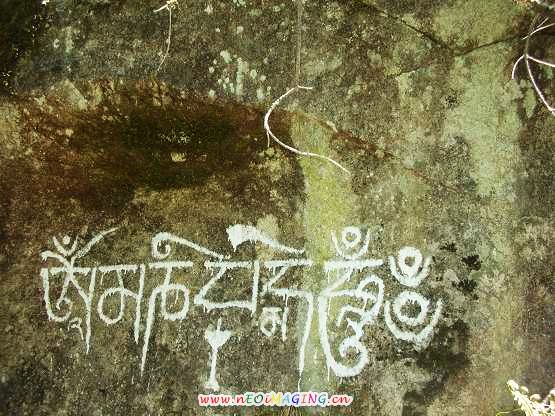 ཨོཾ་མ་ཎི་པདྨེ་ཧཱུྃ
www.nEOiMAGING.cn